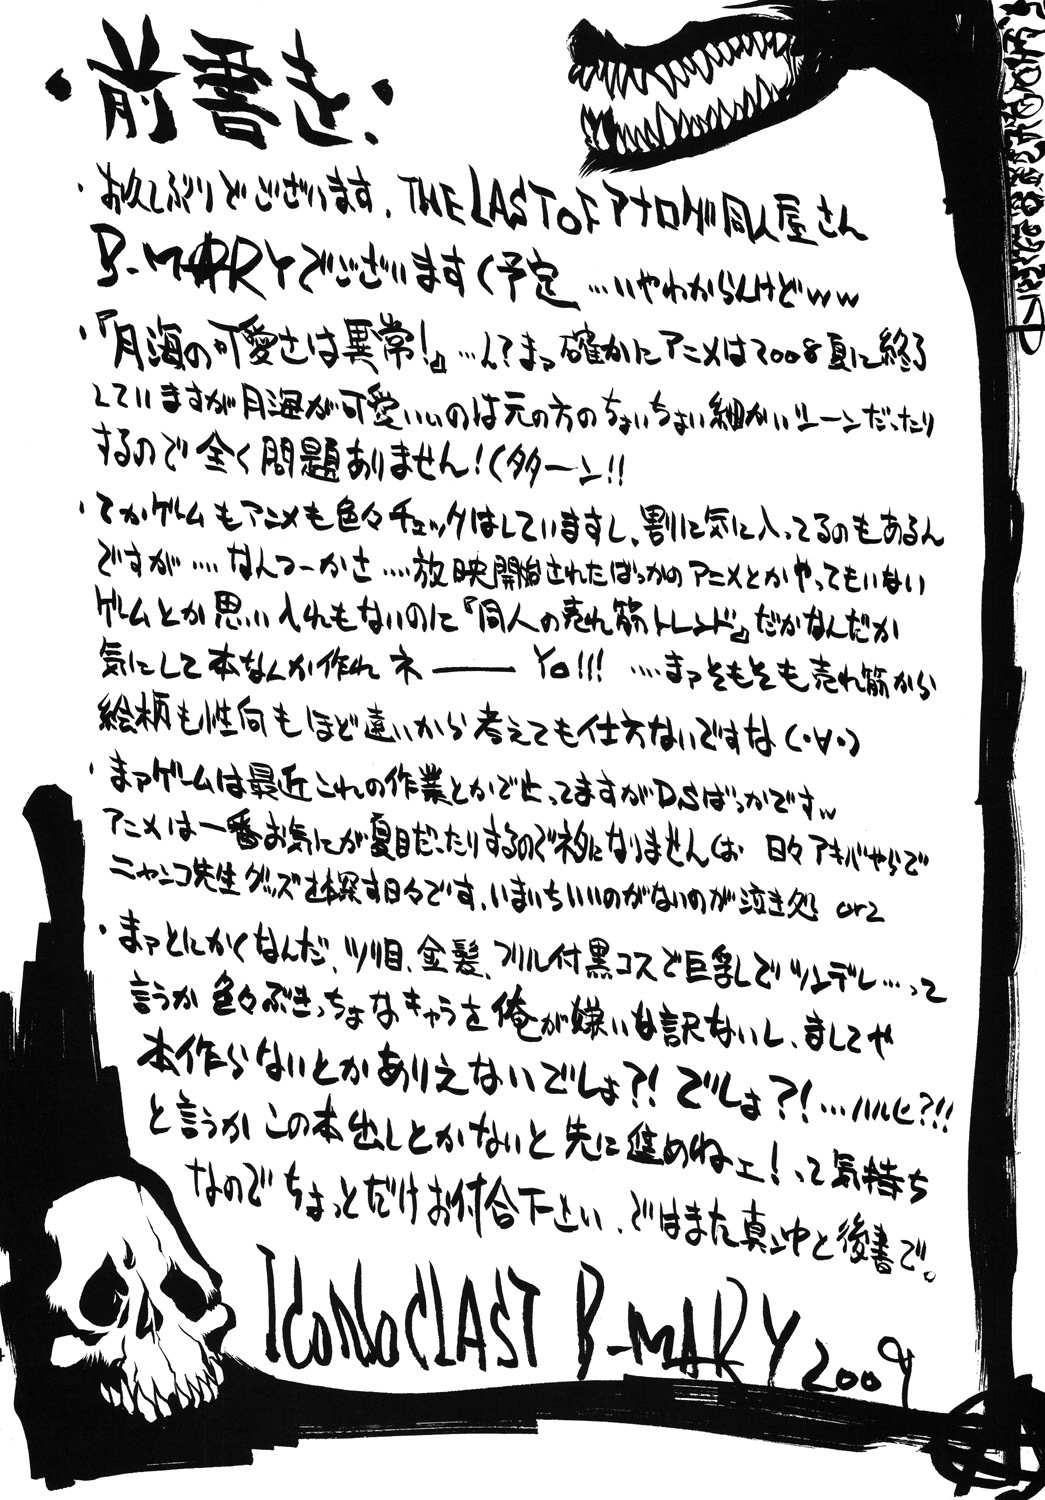 ・前書き・
・お久しぶりどございます、THE LAST OF アナログ同人屋さん
B-MARYでございます(予定 …いやわからんけどww
・『月海の可愛さは異常!』…ん?まァ確かにアニメは2008夏に終了
していますが月海が可愛いいのは元の方のちょいちょい細かいシーンだったり
するので全く問題ありません!(タターン!!
・てかゲームもアニメも色々チェックはしていますし、割に気に入ってるのもあるん
ですが‥‥なんつーかさ‥‥放映開始されたばっかのアニメとかやってもいない
ゲームとか思い入れもないのに『同人の売れ筋トレンド』だかなんだか
気にして本なんか作れネ――Yo!!! ‥‥まァそもそも売れ筋から
絵柄も性向もほど遠いから考えても仕方ないですな(・∀・)
・まァゲームは最近これの作業とかで止ってますがDSばっかですw
アニメは一番お気にが夏目だったりするのでネタになりませんしお 日々アキバやらで
ニャンコ先生グッズを探す日々です、いまいちいいのがないのが泣き処 orz
・まァとにかくなんだ、ツリ目、金髪、フリル付黒コスで巨乳でツンデレ…って
言うか色々ぶきっちょなキャラを俺が嫌いな訳ないし、ましてや
本作らないとかありえないでしょ?!でしょ?!…ハルヒ?!!
と言うかこの本出しとかないと先に進めねェ!って気持ち
なのでちょっとだけお付合下さい、ではまた真ン中と後書で。
ICONOCLAST B-MARY 2009